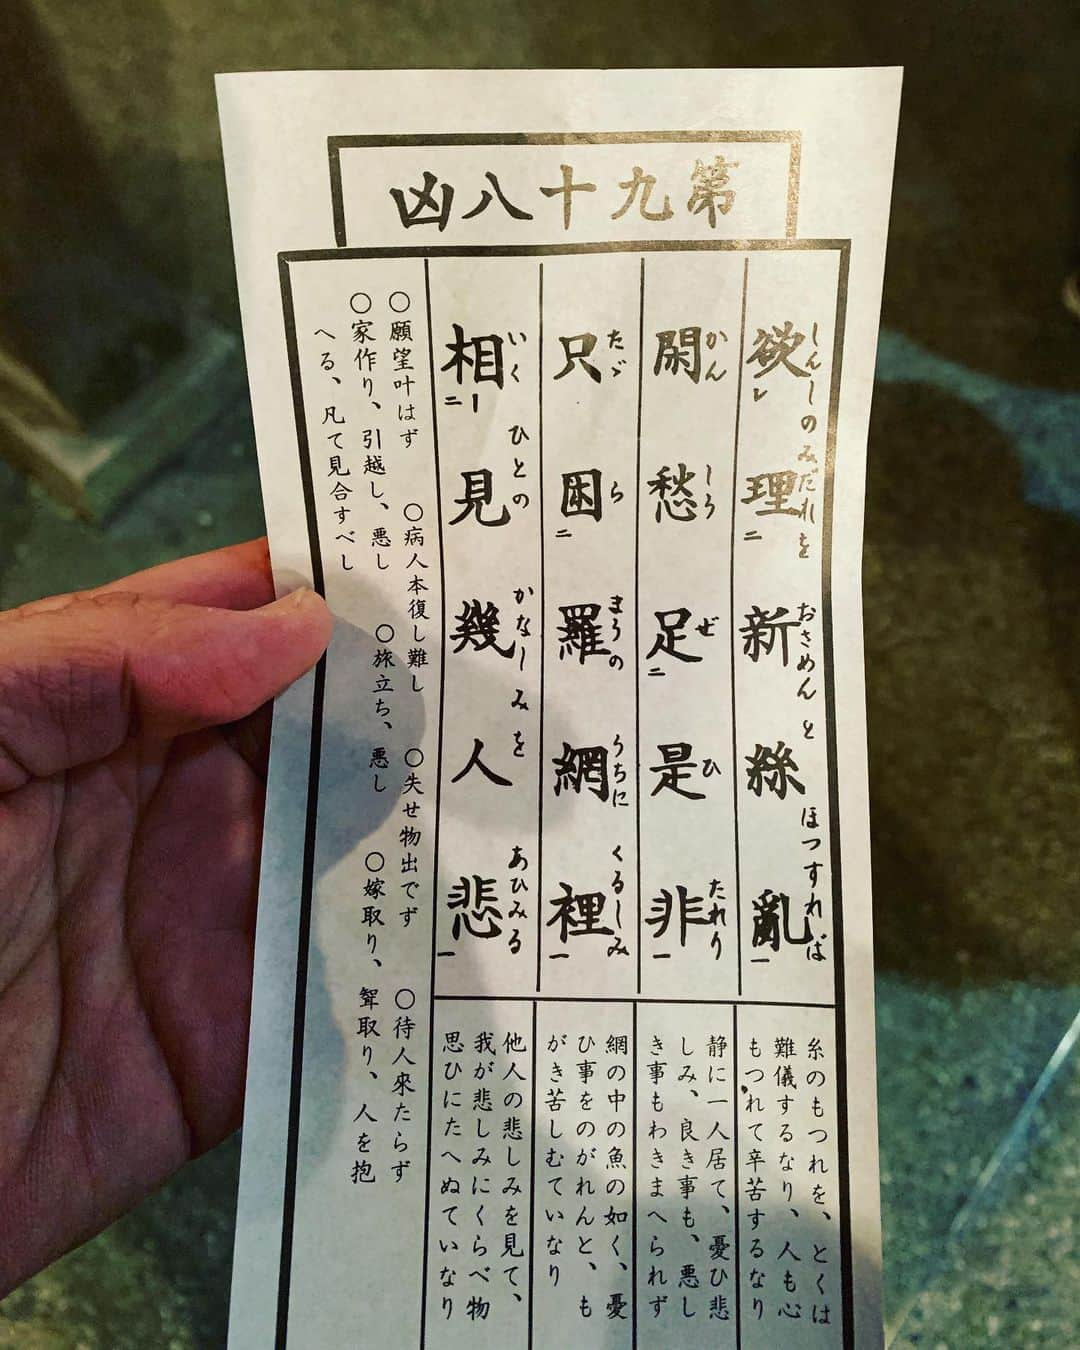 第九十八凶
欲理新絲亂
しんしのみだれを おさめんと ほつすれば
閑愁足是非
かんしうぜひたれり
只困羅網裡
たゞらまうのうちにくるしみ
相見幾人悲
いくひとのかなしみを あひみる
糸のもつれを、とくは
難儀するなり、人も心
もつれて辛苦するなり
静に一人居て、憂ひ悲
しみ、良き事も、悪し
き事もわきまへられず
網の中の魚の如く、憂
ひ事をのがれんと、も
がき苦しむていなり
他人の悲しみを見て、
我が悲しみにくらべ物
思ひにたへぬていなり
○願望叶はず ○病人本復し難し ○失せ物出でず ○待人來たらず
○家作り、引越し、悪し ○旅立ち、悪し ○嫁取り、聟取り、人を抱
へる、凡て見合すべし